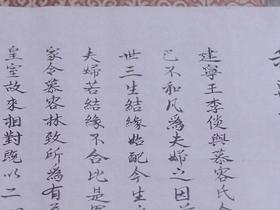 建寧王李倓與慕容氏
已不和凡為夫婦之因
世三生結緣始配今生
夫婦若結緣不合比是
家令慕容林致所為有
皇室故來相對既以二